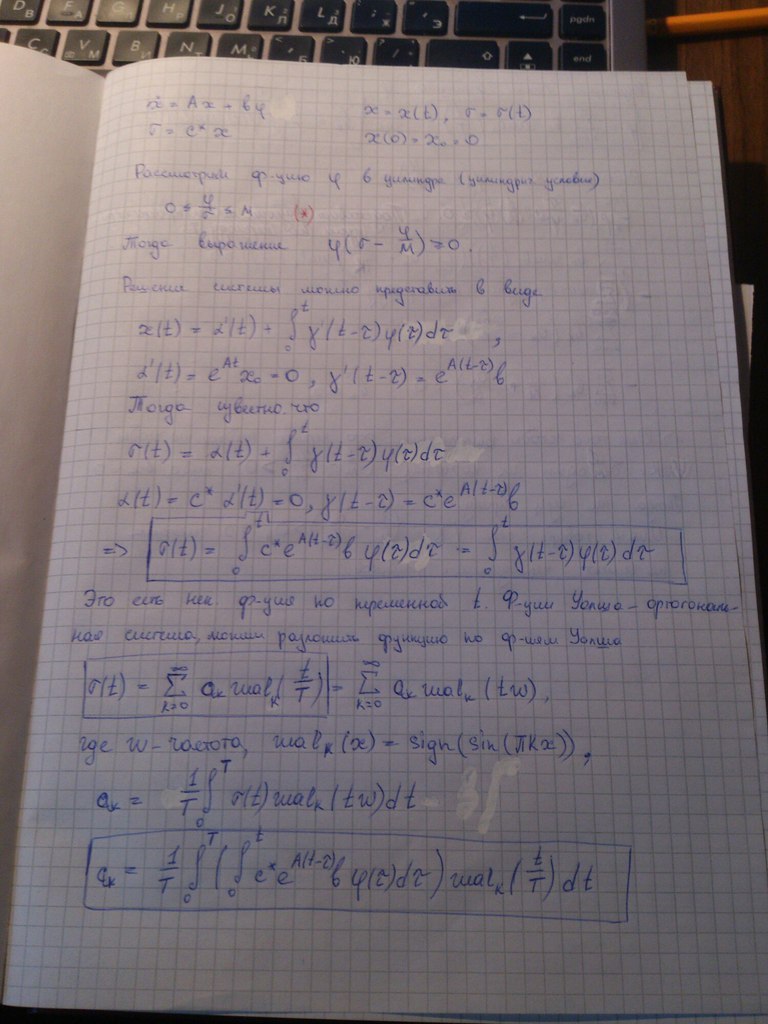 D В F А G H Р J О K Л L Д ; Ж ' Э pgdn
C С V М B И N Т M Ь < , Б > . Ю ? / end
ẋ = Ax + bφ x = x(t), σ = σ(t)
σ = c* x x(0) = x₀ = 0
Рассмотрим ф-цию φ в цилиндре (цилиндрич условии)
0 ≤ φ/σ ≤ м (*)
Тогда выражение φ(σ - φ/м) ≥ 0.
Решение системы можно представить в виде
x(t) = α'(t) + ∫₀ᵗ γ'(t-τ)φ(τ)dτ ,
α'(t) = e^{At} x₀ = 0, γ'(t-τ) = e^{A(t-τ)}b
Тогда известно, что
σ(t) = α(t) + ∫₀ᵗ γ(t-τ)φ(τ)dτ
α(t) = c* α'(t) = 0, γ(t-τ) = c* e^{A(t-τ)}b
=> σ(t) = ∫₀ᵗ c* e^{A(t-τ)}b φ(τ)dτ = ∫₀ᵗ γ(t-τ)φ(τ)dτ
Это есть нек. ф-ция по переменной t. Ф-ции Уолша - ортогональ-
ная система, можем разложить функцию по ф-иям Уолша
σ(t) = ∑_{k=0}^∞ aₖ walₖ(t/T) = ∑_{k=0}^∞ aₖ walₖ(tw),
где w - частота, walₖ(x) = sign(sin(πkx)),
aₖ = 1/T ∫₀ᵀ σ(t) walₖ(tw)dt
aₖ = 1/T ∫₀ᵀ (∫₀ᵗ c* e^{A(t-τ)}b φ(τ)dτ) walₖ(t/T) dt